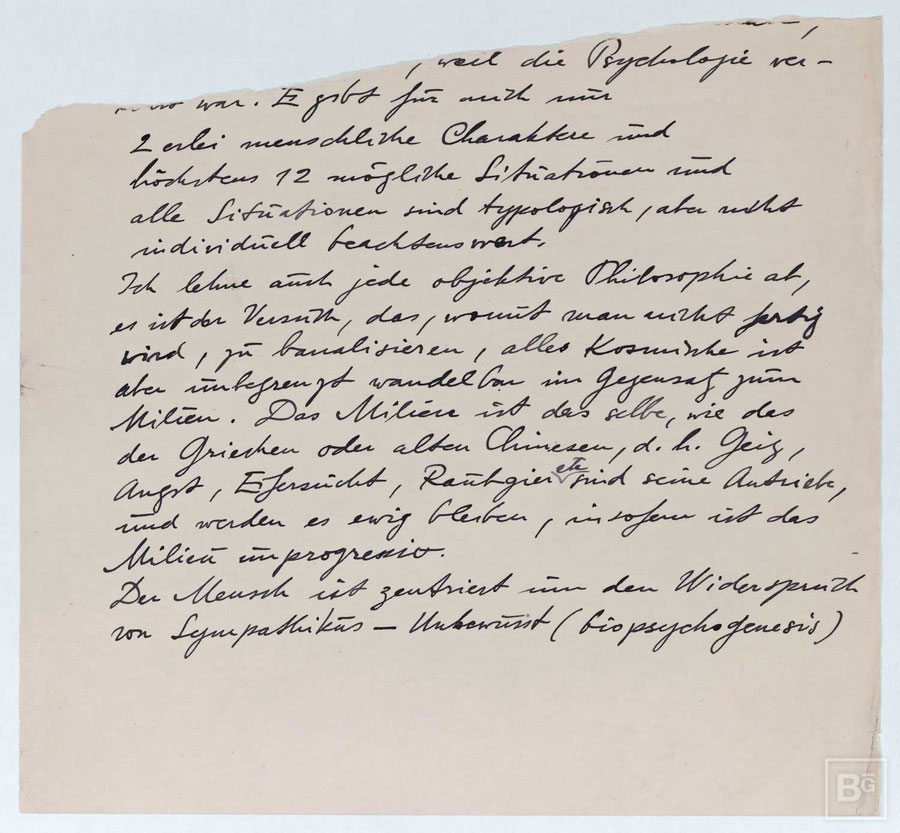 , weil die Psychologie ver-
war. Es gibt für mich nur
2 erlei menschliche Charaktere und
höchstens 12 mögliche Situationen und
alle Situationen sind typologisch, aber nicht
individuell beachtenswert.
Ich lehne auch jede objektive Philosophie ab,
es ist der Versuch, das, womit man nicht fertig
wird, zu banalisieren, alles Kosmische ist
aber unbegrenzt wandelbar im Gegensatz zum
Milieu. Das Milieu ist das selbe, wie das
der Griechen oder alten Chinesen, d. h. Geiz,
Angst, Eifersucht, Raubgier etc sind seine Antriebe,
und werden es ewig bleiben, insofern ist das
Milieu unprogressiv.
Der Mensch ist zentriert um den Widerspruch
von Sympathikus – Unbewusst (biopsychogenesis)
BG